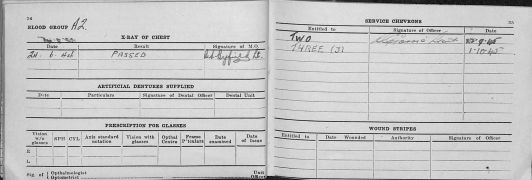 24
BLOOD GROUP A2
X-RAY OF CHEST
Date Result Signature of M.O.
PASSED Lt.
ARTIFICIAL DENTURES SUPPLIED
Date Particulars Signature of Dental Officer Dental Unit
PRESCRIPTION FOR GLASSES
Vision w/o glasses SPH CYL Axis standard notation Vision with glasses Opthal Centre Frame P'ticulars Date examined Date of Issue
R
L
Sig. of Opthalmologist Optometrist Unit Officer
SERVICE CHEVRONS
25
Entitled to Signature of Officer Date
TWO 9.45
THREE (3) 1-10-45
WOUND STRIPES
Entitled to Date Wounded Authority Signature of Officer